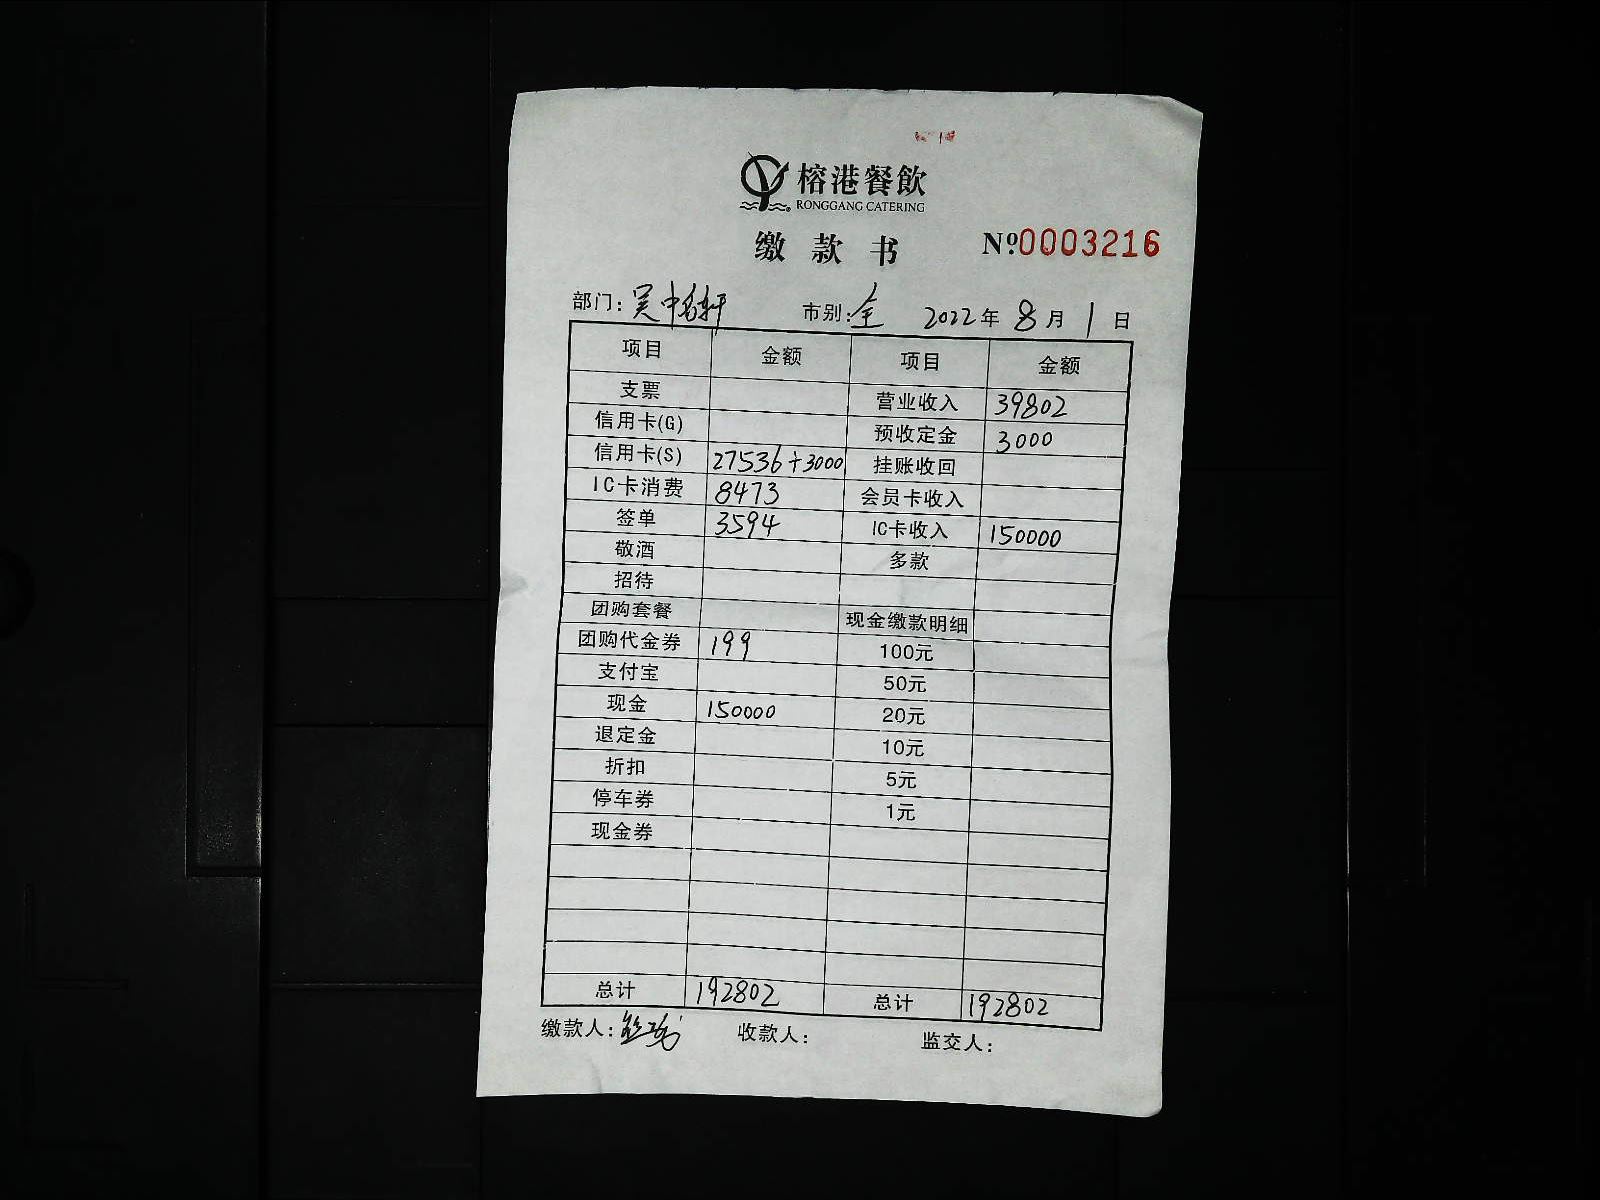 榕港餐飲
RONGGANG CATERING
缴款书 Nº0003216
部门:吴中名轩 市别:全 2022年8月1日
项目 金额 项目 金额
支票 营业收入 39802
信用卡(G) 预收定金 3000
信用卡(S) 27536+3000 挂账收回
IC卡消费 8473 会员卡收入
签单 3594 IC卡收入 150000
敬酒 多款
招待
团购套餐 现金缴款明细
团购代金券 199 100元
支付宝 50元
现金 150000 20元
退定金 10元
折扣 5元
停车券 1元
现金券
总计 192802 总计 192802
缴款人: 收款人: 监交人: